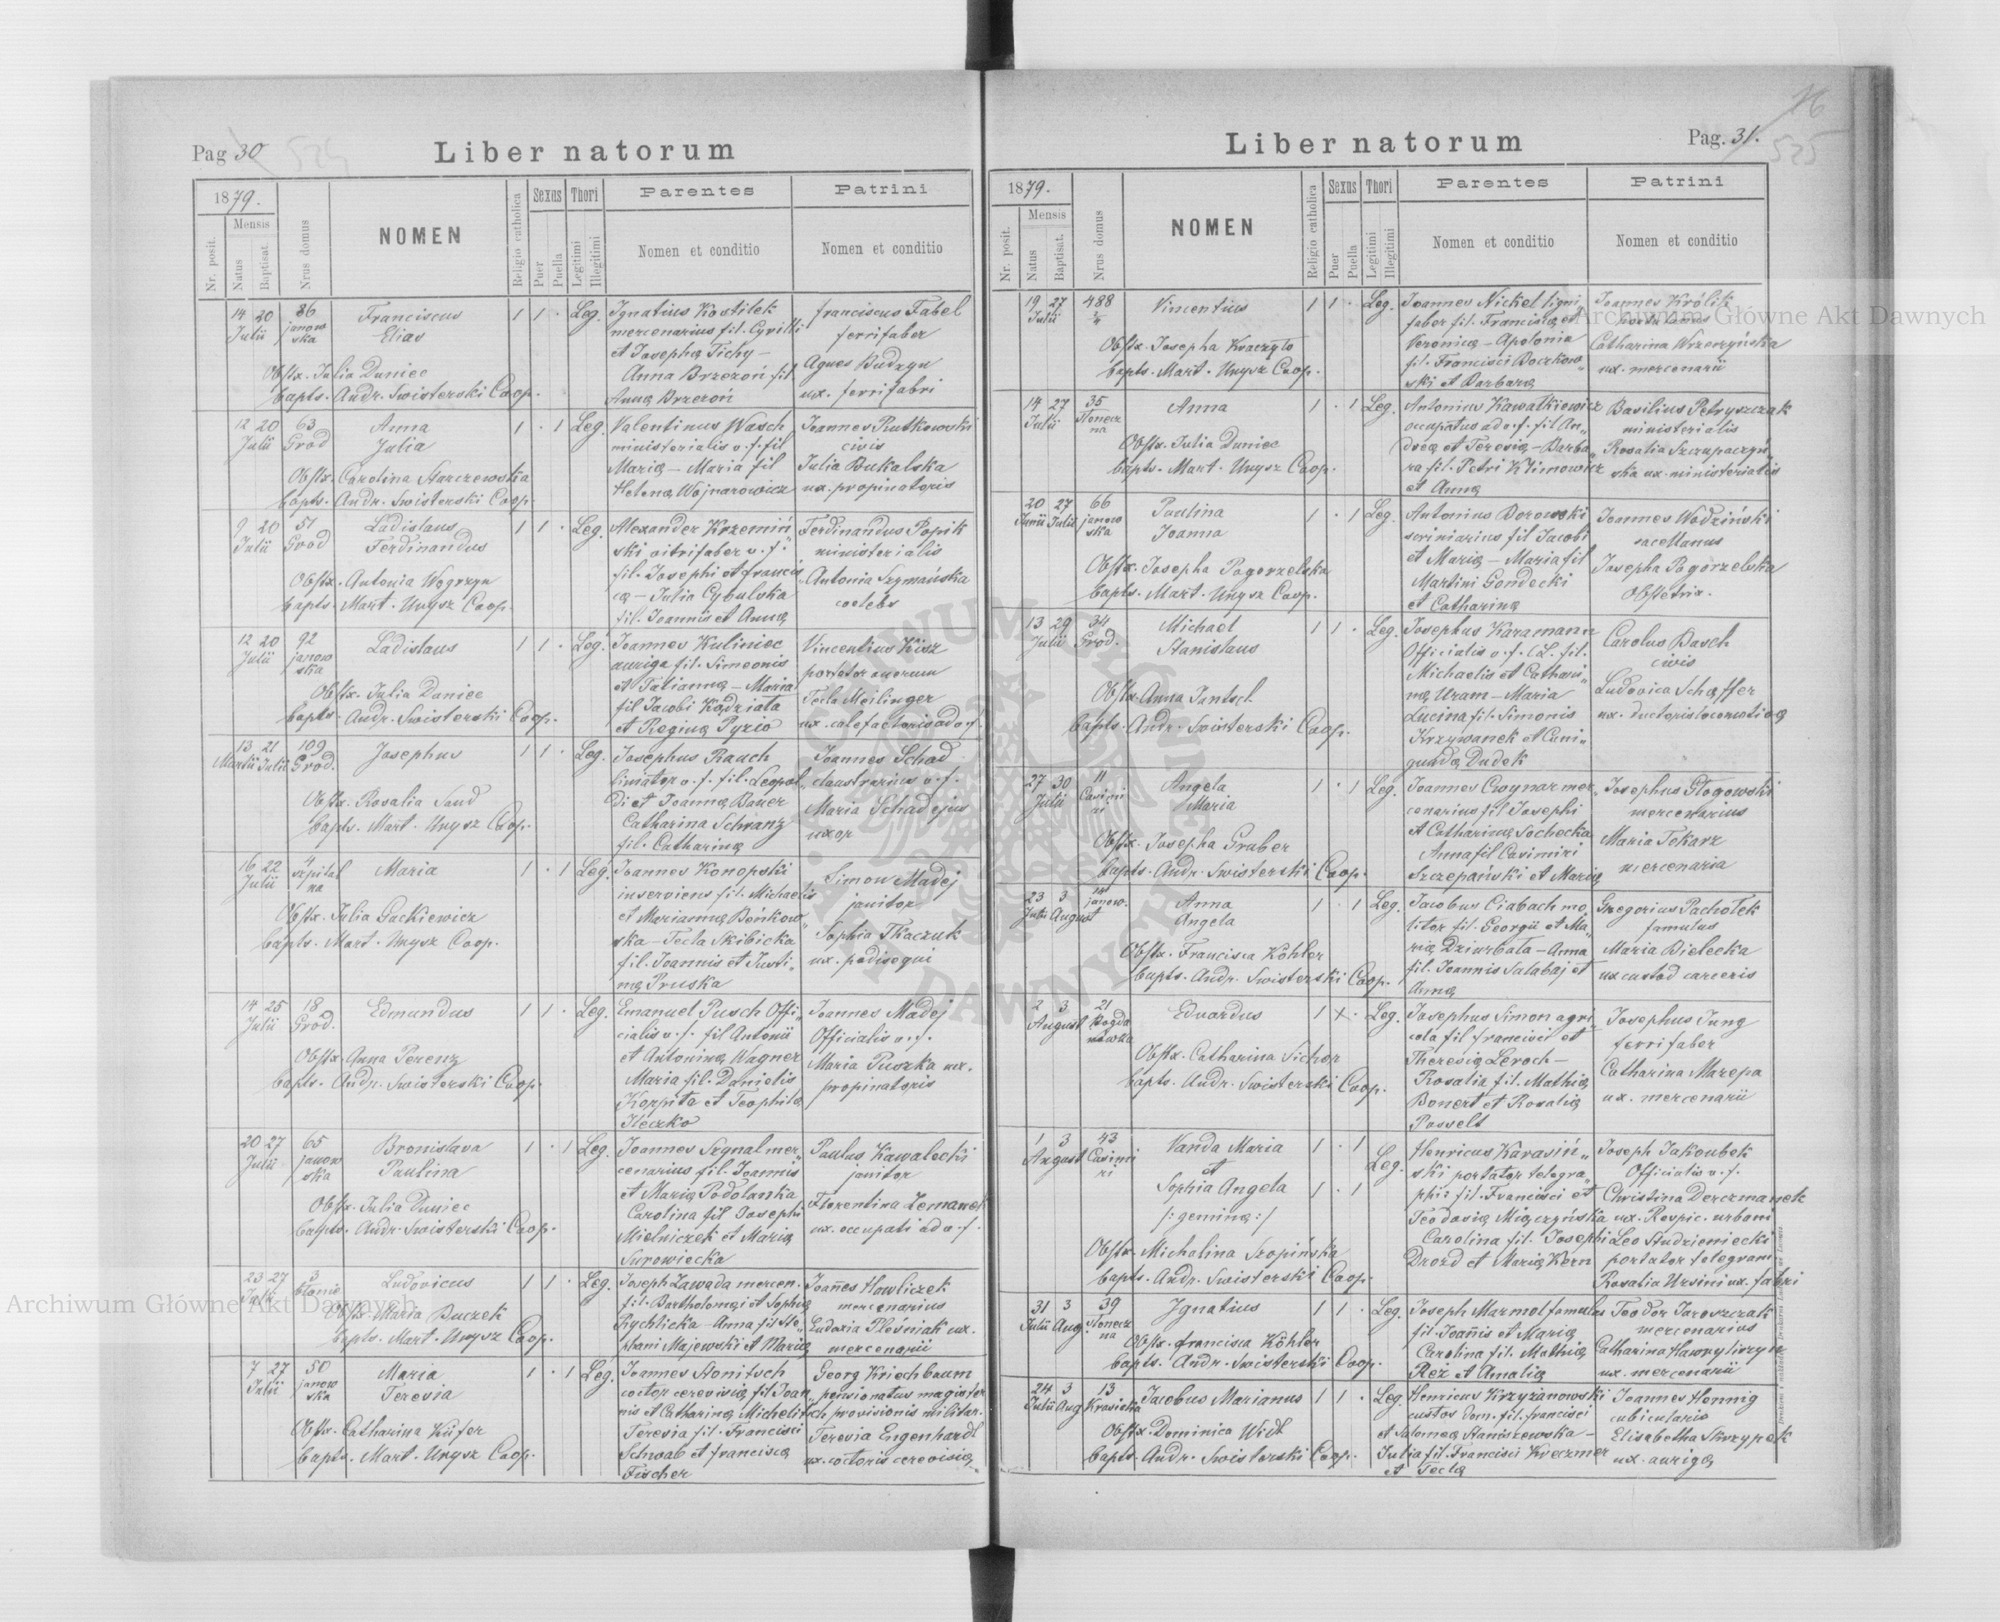 Pag 30
Liber natorum
1879.
Nr. posit.
Mensis
Natus
Baptisat.
Nrus domus
NOMEN
Religio catholica
Sexus
Puer
Puella
Thori
Legitimi
Illegitimi
Parentes
Nomen et conditio
Patrini
Nomen et conditio
14 20 86 Franciscus 1 1 · Leg. Ignatius Kostilek franciscus Fabel
Julii janowska Elias mercenarius fil. Cyrilli ferrifaber
et Josepha Tichy – Agnes Budzyn
Obstx. Julia Duniec Anna Brzezoń fil. ux. ferrifabri
bapts. Andr. Swisterski Coop. Anna Brzezoń
12 20 63 Anna 1 · 1 Leg. Valentinus Wasch Joannes Rutkowski
Julii Grod Julia ministerialis v. f. fil civis
Maria – Maria fil Julia Bukalska
Obstx. Carolina Starczewska Helena Wojnarowicz ux. propinatoris
bapts. Andr. Swisterski Coop.
9 20 51 Ladislaus 1 1 · Leg. Alexander Krzemiń Ferdinandus Popik
Julii Grod Ferdinandus ski vitrifaber v. f. ministerialis
fil. Josephi et francis Antonia Szymańska
Obstx. Antonia Węgrzyn ca – Julia Cybulska coelebs
bapts. Mart. Unysz Coop. fil. Joannis et Anna
12 20 92 Ladislaus 1 1 · Leg. Joannes Kuliniec Vincentius Kisz
Julii janowska auriga fil. Simeonis portator
et Tatianna – Maria Tecla Meilinger
Obstx. Julia Duniec fil Jacobi Kądziała ux. calefactoris ad v. f.
bapts. Andr. Swisterski Coop. et Regina Pyzio
13 21 109 Josephus 1 1 · Leg. Josephus Rauch Joannes Schad
Martii Julii Grod. limator v. f. fil. Leopol claustrarius v. f.
di et Joanna Bauer Maria Schad ejus
Obstx. Rosalia Sand Catharina Schranz uxor
bapts. Mart. Unysz Coop. fil. Catharina
16 22 4 Maria 1 · 1 Leg. Joannes Konopski Simon Madej
Julii szpitalna inserviens fil. Michaelis janitor
et Marianna Bońkow Sophia Tkaczuk
Obstx. Julia Gackiewicz ska – Tecla Skibicka ux. pedisequi
bapts. Mart. Unysz Coop. fil. Joannis et Justi
na Pruska
14 25 18 Edmundus 1 1 · Leg. Emanuel Pusch Offi Joannes Madej
Julii Grod. cialis v. f. fil Antonii Officialis v. f.
et Antonina Wagner Maria Puszka ux.
Obstx. Anna Perenz Maria fil. Danielis propinatoris
bapts. Andr. Swisterski Coop. Korpita et Teophila
Heczko
20 27 65 Bronislava 1 · 1 Leg. Joannes Szynal mer Paulus Kawalecki
Julii janowska Paulina cenarius fil. Joannis janitor
et Maria Podolanka Florentina Lemanek
Obstx. Julia Duniec Carolina fil Josephi ux. occupati ad v. f.
bapts. Andr. Swisterski Coop. Mielniczek et Maria
Surowiecka
23 27 3 Ludovicus 1 1 · Leg. Joseph Zawada mercen. Joañes Howliczek
Julii błonie fil. Bartholomæi et Sophia mercenarius
Obstx. Maria Buczek Rychlicka – Anna fil Ste Eudoxia Pleśniak ux.
bapts. Mart. Unysz Coop. phani Majewski et Maria mercenarii
7 27 50 Maria 1 · 1 Leg. Joannes Stonitsch Georg Kriechbaum
Julii janowska Teresia coctor cerevisiæ fil Joan pensionatus magister
nis et Catharina Michelitsch provisionis militar.
Obstx. Catharina Küfer Teresia fil. Francisci Teresia Engenhardt
bapts. Mart. Unysz Coop. Schwab et francisca ux. coctoris cerevisiæ
Fischer
Pag. 31.
Liber natorum
1879.
Nr. posit.
Mensis
Natus
Baptisat.
Nrus domus
NOMEN
Religio catholica
Sexus
Puer
Puella
Thori
Legitimi
Illegitimi
Parentes
Nomen et conditio
Patrini
Nomen et conditio
19 27 488 2/4 Vincentius 1 1 · Leg. Joannes Nickel ligni Joannes Królik
Julii faber fil. Francisca et
Obstx. Josepha Kraczyło Veronica – Apolonia Catharina Wrzeszyńska
bapts. Mart. Unysz Coop. fil. Francisci Boczkow ux. mercenarii
ski et Barbara
14 27 35 Anna 1 · 1 Leg. Antonius Kawałkiewicz Basilius Petryszczak
Julii Słoneczna occupatus ad v. f. fil An ministerialis
Obstx. Julia Duniec drea et Teresia – Barba Rosalia Szczupaczyń
bapts. Mart. Unysz Coop. ra fil. Petri Klimowicz ska ux. ministerialis
et Anna
20 27 66 Paulina 1 · 1 Leg. Antonius Borowski Joannes Wodziński
Junii Julii janowska Joanna scriniarius fil Jacobi sacellanus
et Maria – Maria fil Josepha Pogorzelska
Obstx. Josepha Pogorzelska Martini Gondecki Obstetrix.
bapts. Mart. Unysz Coop. et Catharina
13 29 34 Michael 1 1 · Leg. Josephus Karamann Carolus Basch
Julii Grod. Stanislaus Officialis v. f. C. L. fil. civis
Michaelis et Cathari Ludovica Schæffer
Obstx. Anna Jantsch na Uram – Maria ux. ductoris locomotivæ
bapts. Andr. Swisterski Coop. Lucina fil. Simonis
Krzywanek et Cuni
gunda Dudek
27 30 11 Angela 1 · 1 Leg. Joannes Cwynar mer Josephus Głogowski
Julii Casimiri Maria cenarius fil Josephi mercenarius
Obstx. Josepha Graber et Catharina Sochecka Maria Tokarz
bapts. Andr. Swisterski Coop. Anna fil Casimiri mercenaria
Szczepański et Maria
23 3 14 Anna 1 · 1 Leg. Jacobus Ciabach mo Gregorius Pachołek
Julii August janow. Angela litor fil. Georgii et Ma famulus
Obstx. Francisca Köhler ria Dziurbała – Anna Maria Bielecka
bapts. Andr. Swisterski Coop. fil. Joannis Salabaj et ux custod carceris
Anna
2 3 21 Eduardus 1 x · Leg. Josephus Simon agri Josephus Jung
August Bogdanówka cola fil francisci et ferrifaber
Obstx. Catharina Sichor Theresia Leroch – Catharina Mazepa
bapts. Andr. Swisterski Coop. Rosalia fil. Mathia ux. mercenarii
Bonert et Rosalia
Posselt
1 3 43 Vanda Maria 1 · 1 Leg. Henricus Karasiń Joseph Jakoubek
August Casimiri et ski portator telegra Officialis v. f.
Sophia Angela 1 · 1 phi fil. Francisci et Christina Derczmanek
/: gemina :/ Teodosia Miączyńska ux. Respic. urbani
Obstx. Michalina Szopińska Carolina fil. Josephi Leo Studzieniecki
bapts. Andr. Swisterski Coop. Drozd et Maria Kern portator telegram.
Rosalia Ursini ux. fabri
31 3 39 Ignatius 1 1 · Leg. Joseph Marmol famulus Teodor Jaroszczak
Julii Aug. Słoneczna fil. Joañis et Maria mercenarius
Obstx. francisca Köhler Carolina fil. Mathia Catharina Hawryliszyn
bapts. Andr. Swisterski Coop. Reż et Amalia ux. mercenarii
24 3 13 Jacobus Marianus 1 1 · Leg. Henricus Krzyżanowski Joannes Hennig
Julii Aug Krasicka custos dom. fil. francisci cubicularis
Obstx. Dominica Widt et Salomea Staniszewska – Elisabetha Skrzypek
bapts. Andr. Swisterski Coop. Julia fil. Francisci Kreczmer ux. auriga
et Tecla
Archiwum Główne Akt Dawnych
Archiwum Główne Akt Dawnych